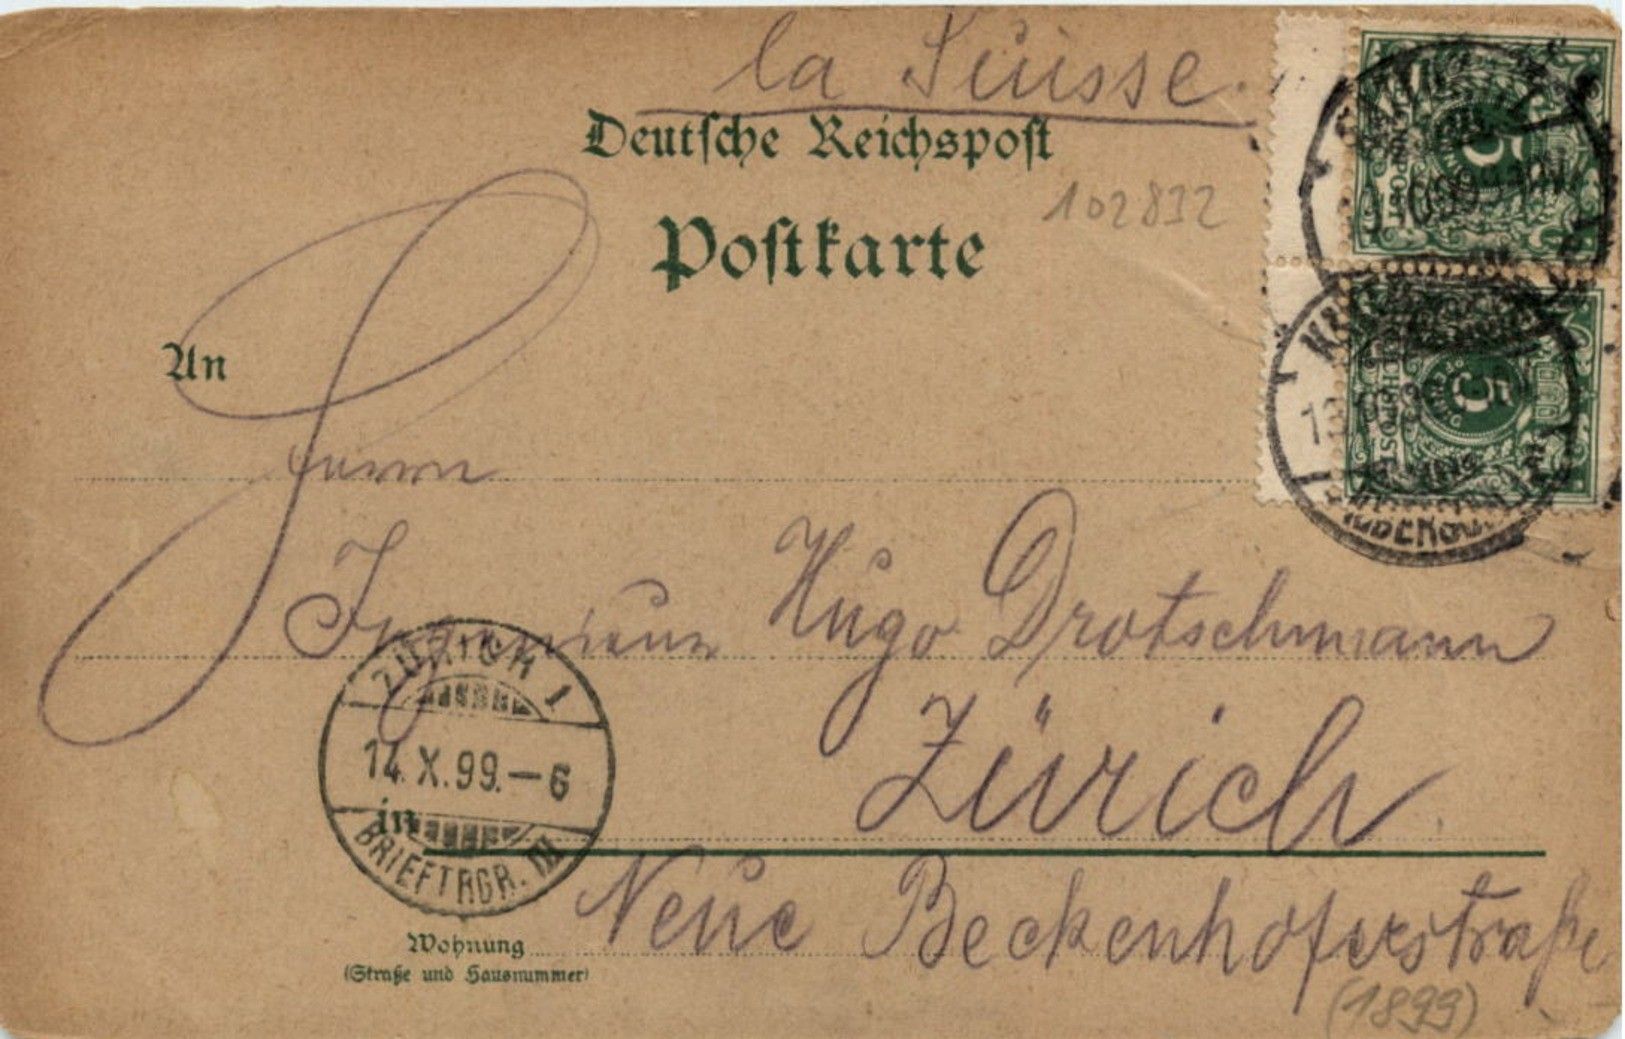 la Suisse.
Deutsche Reichspost
102832
Postkarte
An
Herrn
Ingenieur Hugo Drotschmann
Zürich
in
Neue Beckenhoferstraße
Wohnung
(Straße und Hausnummer)
(1899)
ZÜRICH 1
14.X.99.–6
BRIEFTRGR. III
5
5